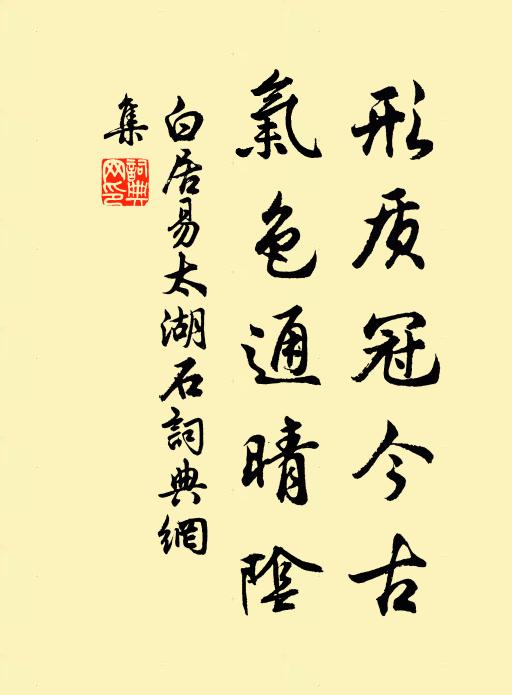 形质冠今古
氣色通晴陰
白居易太湖石詞典網
集
詞典
网印